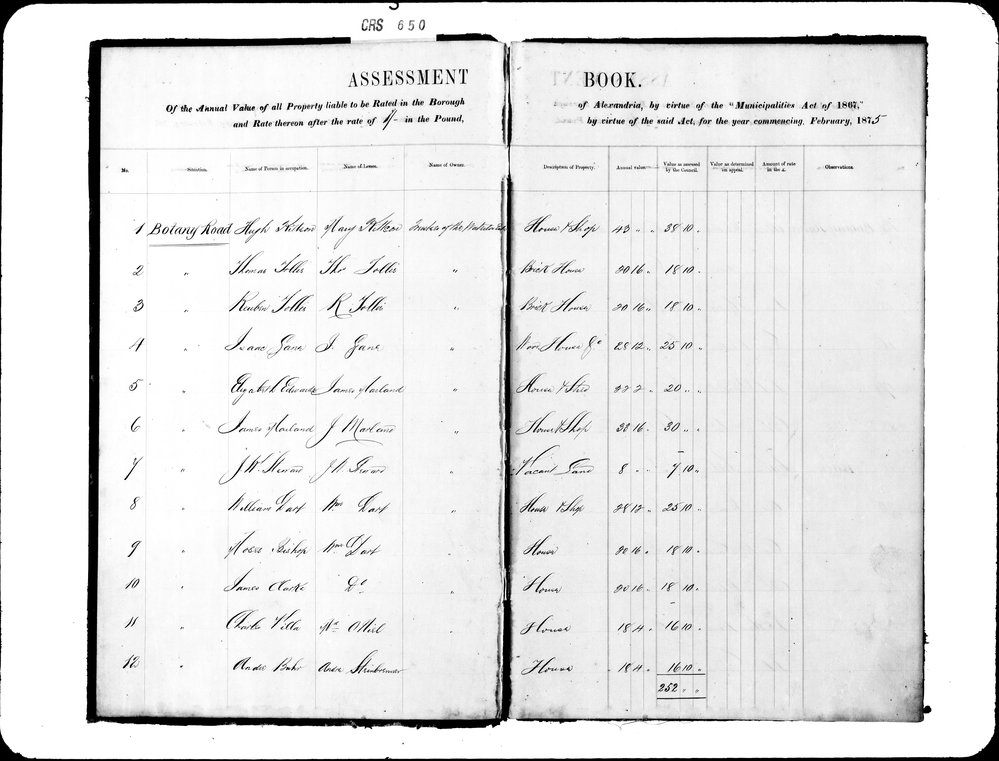 CRS 650
ASSESSMENT BOOK.
Of the Annual Value of all Property liable to be Rated in the Borough of Alexandria, by virtue of the "Municipalities Act of 1867,"
and Rate thereon after the rate of 1/- in the Pound, by virtue of the said Act, for the year commencing February, 1875
No. Situation. Name of Person in occupation. Name of Lessee. Name of Owner. Description of Property. Annual value. Value as assessed by the Council. Value as determined on appeal. Amount of rate in the £. Observations.
1 Botany Road Hugh Kitson Mary Kitson Trustees of the House & Shop 43 " " 38 10 "
2 " Thomas Tollis Tho Tollis " Brick House 20 16 " 18 10 "
3 " Reuben Tollis R Tollis " Brick House 20 16 " 18 10 "
4 " Isaac Gane I. Gane " House &c 28 12 " 25 10 "
5 " Elizabeth Edwards James " House & Shed 22 2 " 20 " "
6 " James J " House & Shop 32 16 " 30 " "
7 " J W J W " Vacant Land 8 " " 7 10 "
8 " William Dart Wm Dart " House & Shop 28 12 " 25 10 "
9 " Moses Bishop Wm Dart " House 20 16 " 18 10 "
10 " James Clarke Do " House 20 16 " 18 10 "
11 " Charles Villa " House 18 4 " 16 10 "
12 " Andre Andre House 18 4 " 16 10 "
252 " "